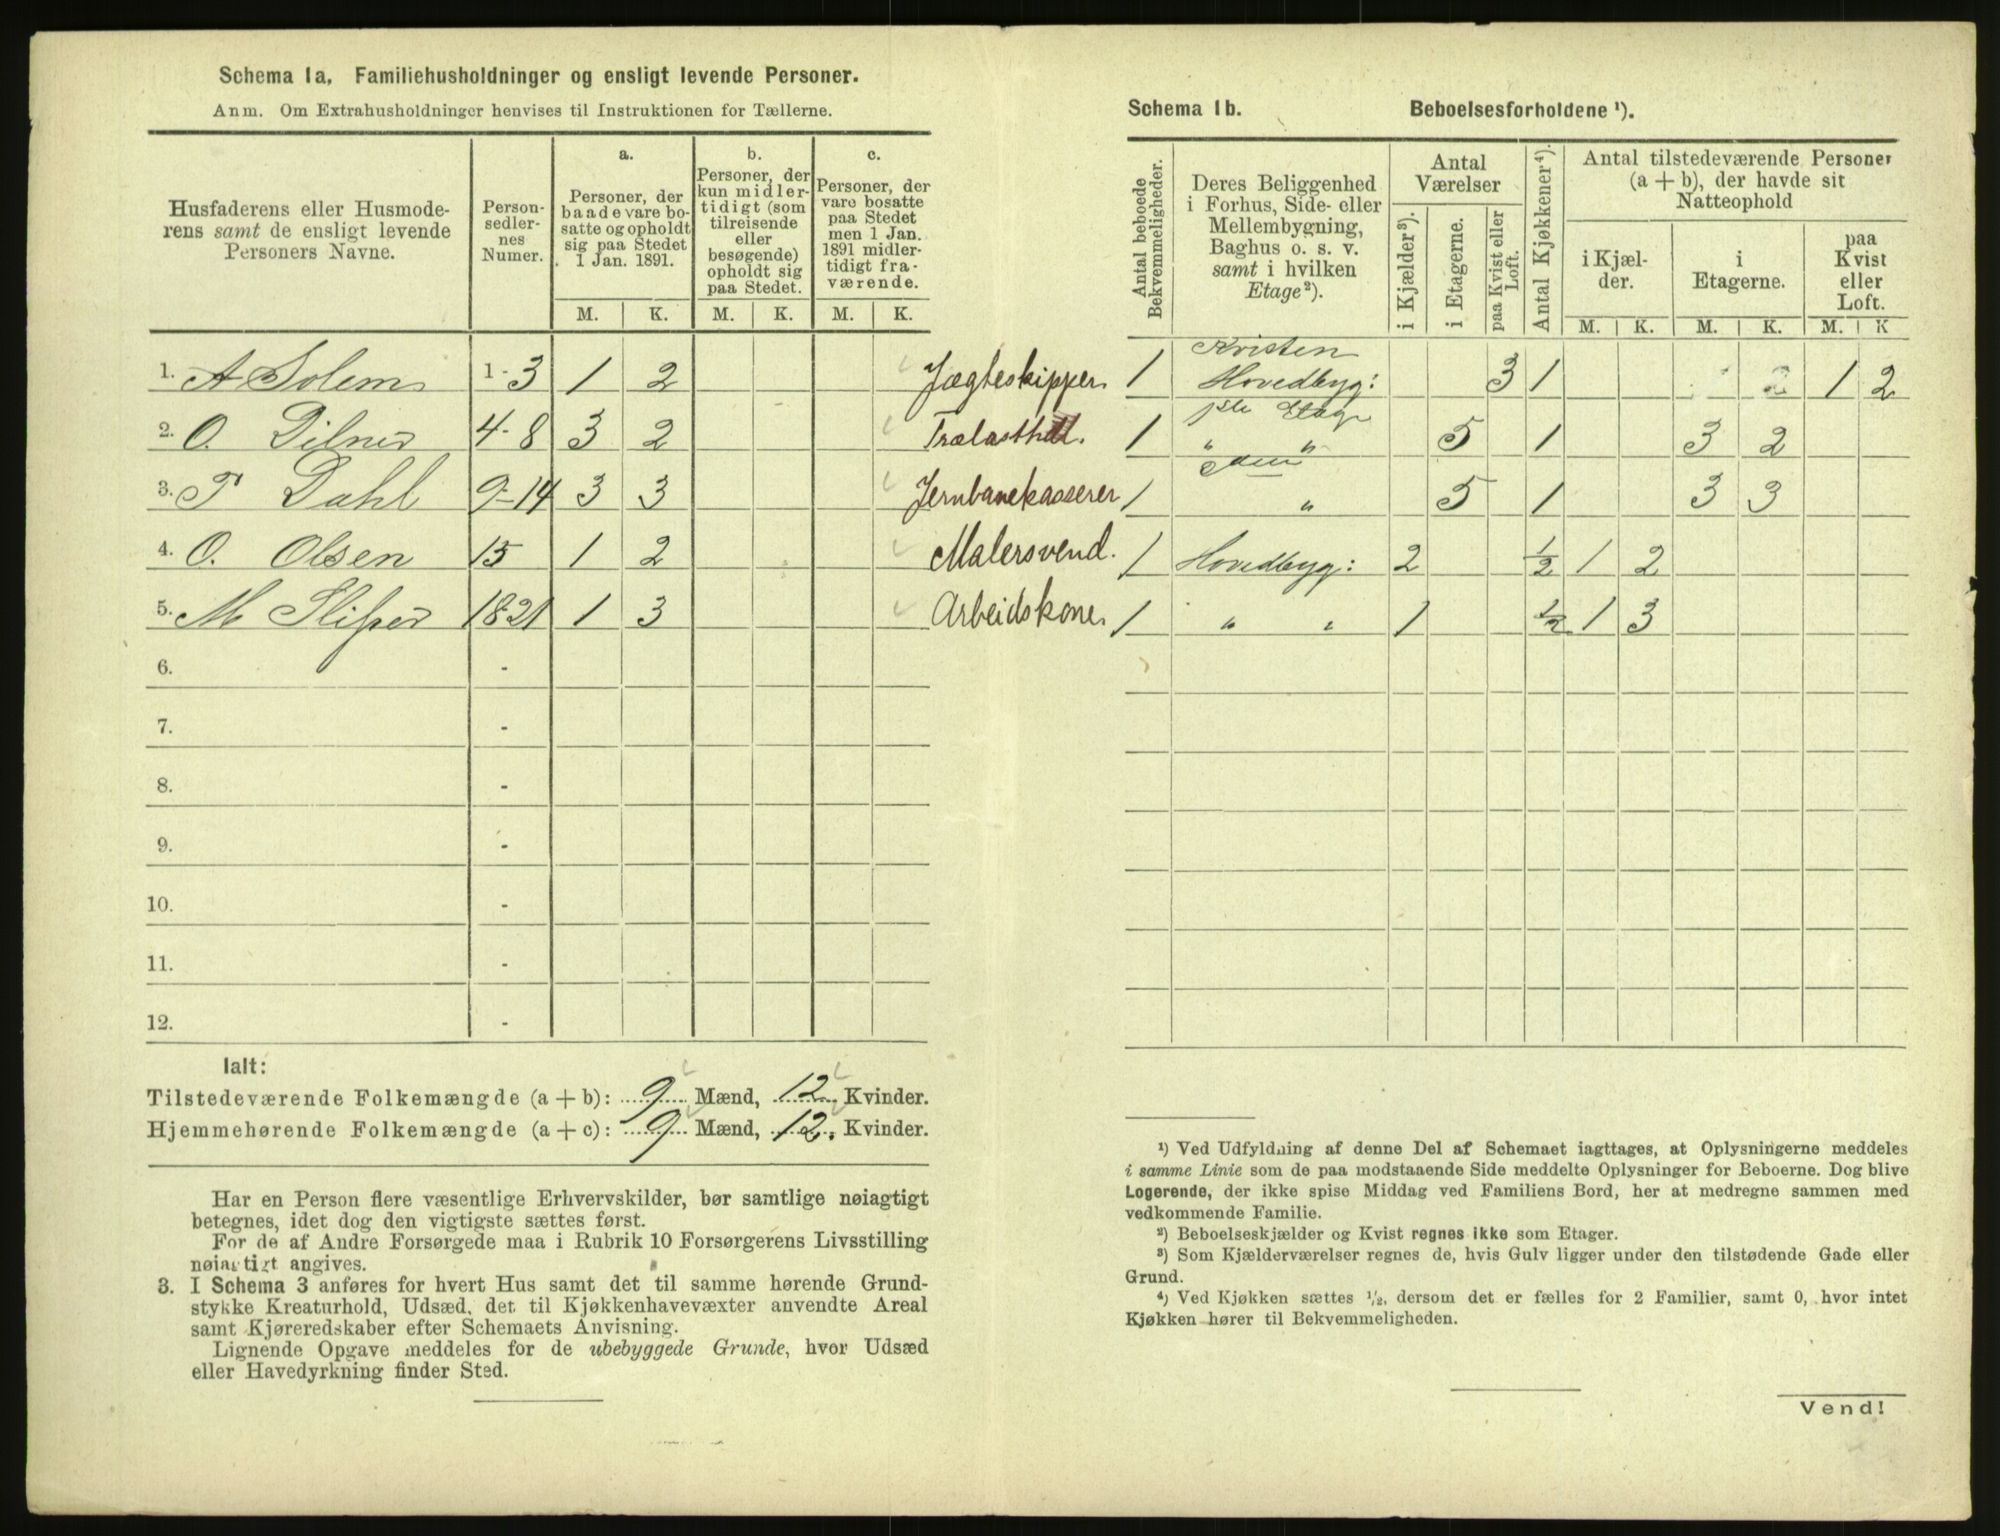 Schema 1a. Familiehusholdninger og ensligt levende Personer.
Anm. Om Extrahusholdninger henvises til Instruktionen for Tællerne.
Husfaderens eller Husmode-
rens samt de ensligt levende
Personers Navne.
Person-
sedler-
nes
Numer.
a.
Personer, der
baade vare bo-
satte og opholdt
sig paa Stedet
1 Jan. 1891.
b.
Personer, der
kun midler-
tidigt (som
tilreisende
eller
besøgende)
opholdt sig
paa Stedet.
c.
Personer, der
vare bosatte
paa Stedet
men 1 Jan.
1891 midler-
tidigt fra-
værende.
M. K. M. K. M. K.
1. A Solem 1-3 1 2 Jægteskipper
2. O. Dilner 4-8 3 2 Trælasthdl.
3. P Dahl 9-14 3 3 Jernbanekasserer
4. O. Olsen 15 1 2 Malersvend.
5. M 1821 1 3 Arbeidskone
6. -
7. -
8. -
9. -
10. -
11. -
12. -
Ialt:
Tilstedeværende Folkemængde (a+b): 9 Mænd, 12 Kvinder.
Hjemmehørende Folkemængde (a+c): 9 Mænd, 12. Kvinder.
Har en Person flere væsentlige Erhvervskilder, bør samtlige nøiagtigt
betegnes, idet dog den vigtigste sættes først.
For de af Andre Forsørgede maa i Rubrik 10 Forsørgerens Livsstilling
nøiagtigt angives.
3. I Schema 3 anføres for hvert Hus samt det til samme hørende Grund-
stykke Kreaturhold, Udsæd, det til Kjøkkenhavevæxter anvendte Areal
samt Kjøreredskaber efter Schemaets Anvisning.
Lignende Opgave meddeles for de ubebyggede Grunde, hvor Udsæd
eller Havedyrkning finder Sted.
Schema 1b. Beboelsesforholdene ¹).
Antal beboede
Bekvemmeligheder.
Deres Beliggenhed
i Forhus, Side- eller
Mellembygning,
Baghus o. s. v.
samt i hvilken
Etage²).
Antal
Værelser
i Kjælder³).
i Etagerne.
paa Kvist eller
Loft.
Antal Kjøkkener⁴).
Antal tilstedeværende Personer
(a+b), der havde sit
Natteophold
i Kjæl-
der.
i
Etagerne.
paa
Kvist
eller
Loft.
M. K. M. K. M. K
Kvisten
1 Hovedbyg: 3 1 2 1 2
1ste Etage
1 " " 5 1 3 2
1 " 5 1 3 3
1 Hovedbyg: 2 ½ 1 2
1 " " 1 ½ 1 3
¹) Ved Udfyldning af denne Del af Schemaet iagttages, at Oplysningerne meddeles
i samme Linie som de paa modstaaende Side meddelte Oplysninger for Beboerne. Dog blive
Logerende, der ikke spise Middag ved Familiens Bord, her at medregne sammen med
vedkommende Familie.
²) Beboelseskjælder og Kvist regnes ikke som Etager.
³) Som Kjælderværelser regnes de, hvis Gulv ligger under den tilstødende Gade eller
Grund.
⁴) Ved Kjøkken sættes ½, dersom det er fælles for 2 Familier, samt 0, hvor intet
Kjøkken hører til Bekvemmeligheden.
Vend!